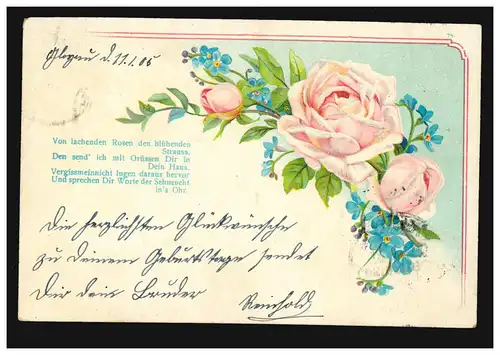 Glogau d. 11.1.05
Von lachenden Rosen den blühenden
Strauss,
Den send' ich mit Grüssen Dir in
Dein Haus.
Vergissmeinnicht lugen daraus hervor
Und sprechen Dir Worte der Sehnsucht
in's Ohr.
Die herzlichsten Glückwünsche
zu deinem Geburtstage sendet
Dir dein Bruder
Reinhold